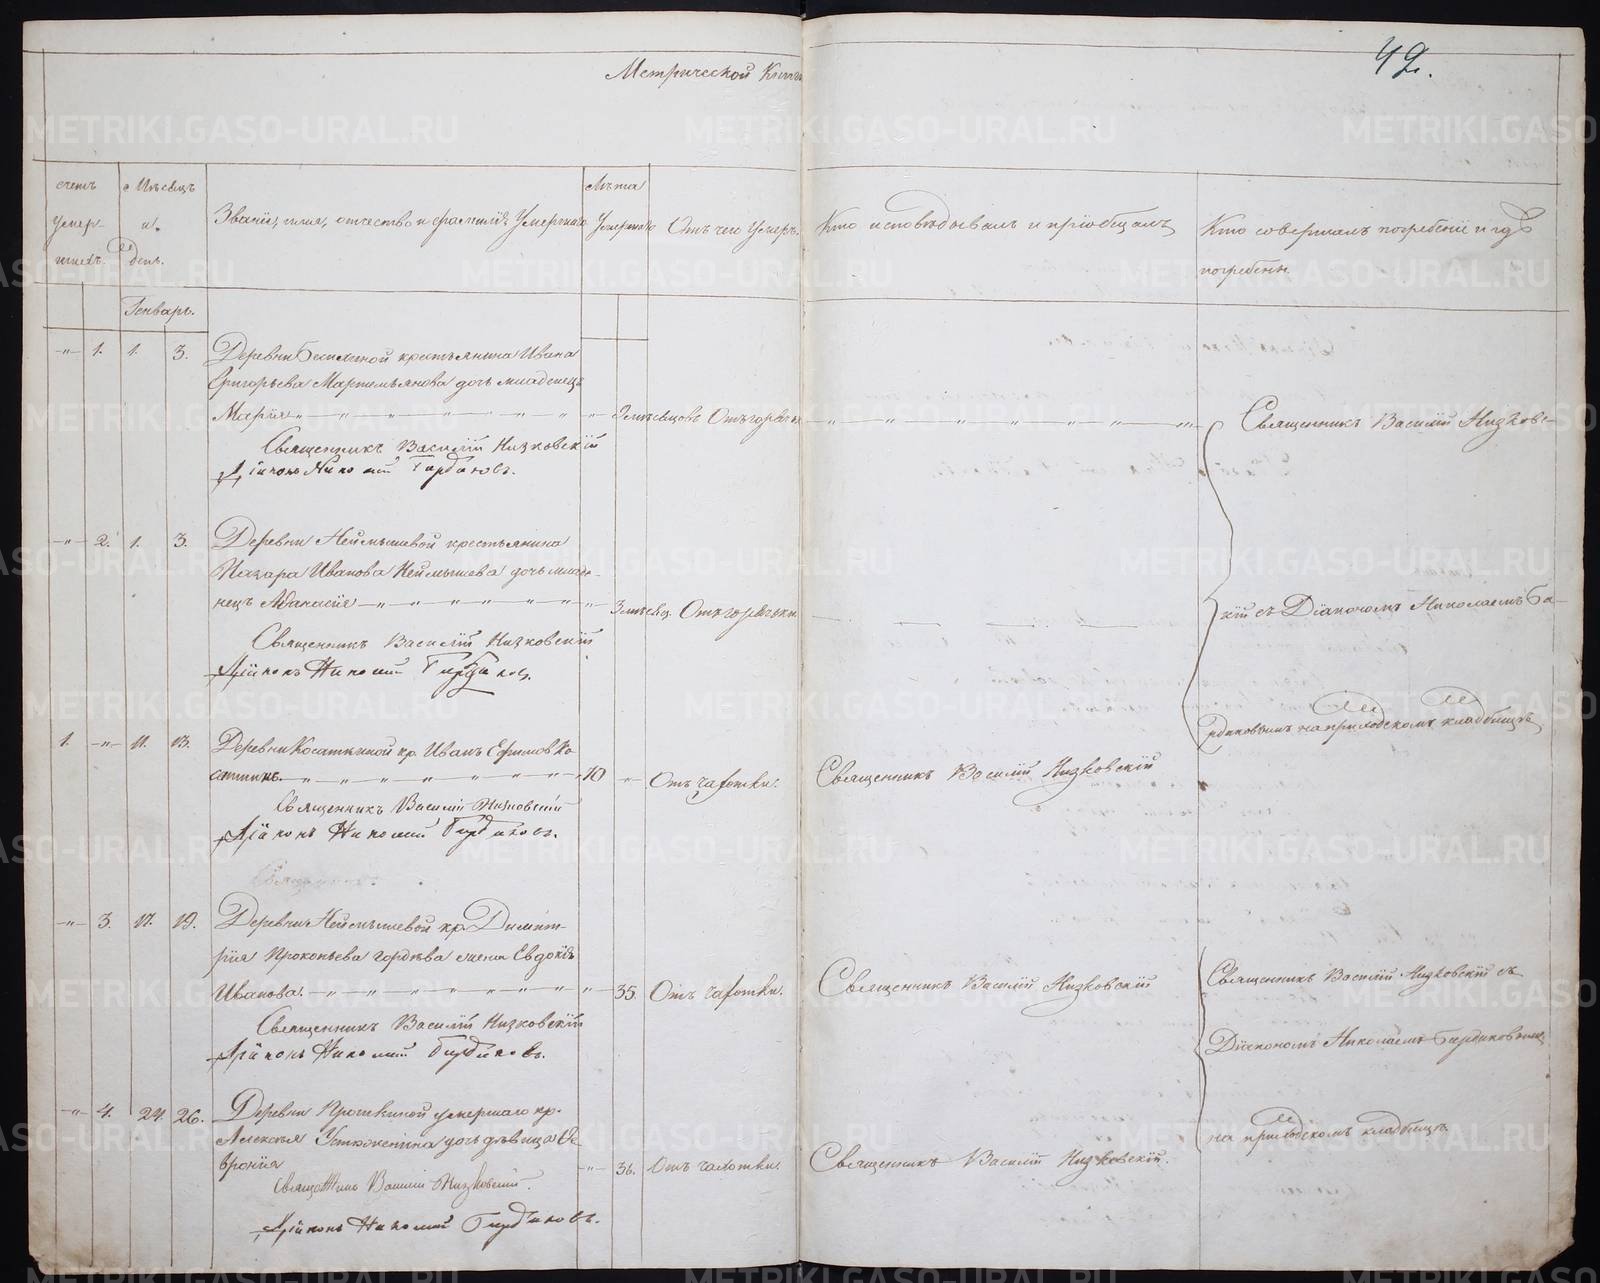 Метрической Книги
42.
счетъ умер-шихъ.
Мѣсяцъ и день.
Званiе, имя, отчество и фамилiя Умершаго
Лѣта Умершаго
Отъ чего Умеръ.
Кто исповѣдывалъ и прiобщалъ
Кто совершалъ погребенiе и гдѣ
погребены.
Генварь.
-"- 1. 1. 3.
Деревни крестьянина Ивана
Григорьева Мартемьянова дочь младенецъ
Марiя
мѣсяцовъ Отъ горячки
Священникъ Василiй Низковскiй
Дiаконъ Николай
Священникъ Василiй Низковс-
-"- 2. 1. 3.
Деревни Неймышевой крестьянина
Назара Иванова Неймышева дочь младе-
нецъ Афанасiя
3 мѣсяц. Отъ горячки
Священникъ Василiй Низковскiй
Дiаконъ Николай
кiй съ Дiакономъ Николаемъ
на приходскомъ кладбищѣ
1. -"- 11. 13.
Деревни Косаткиной кр. Иванъ Ефимовъ Ко-
саткинъ.
70 Отъ чахотки.
Священникъ Василiй Низковскiй
Священникъ Василiй Низковскiй
Дiаконъ Николай
-"- 3. 17. 19.
Деревни Неймышевой кр. Димит-
рiя Прокопьева Гордѣева жена Евдокiя
Иванова.
35. Отъ чахотки.
Священникъ Василiй Низковскiй
Священникъ Василiй Низковскiй съ
Священникъ Василiй Низковскiй
Дiаконъ Николай
Дiакономъ Николаемъ
-"- 4. 24. 26.
Деревни Прошкиной умершаго кр.
Алексѣя Устюженина дочь дѣвица Фе-
вронiя
36. Отъ чахотки.
Священникъ Василiй Низковскiй.
на приходскомъ кладбищѣ
Василiй Низковскiй.
Дiаконъ Николай
METRIKI.GASO-URAL.RU